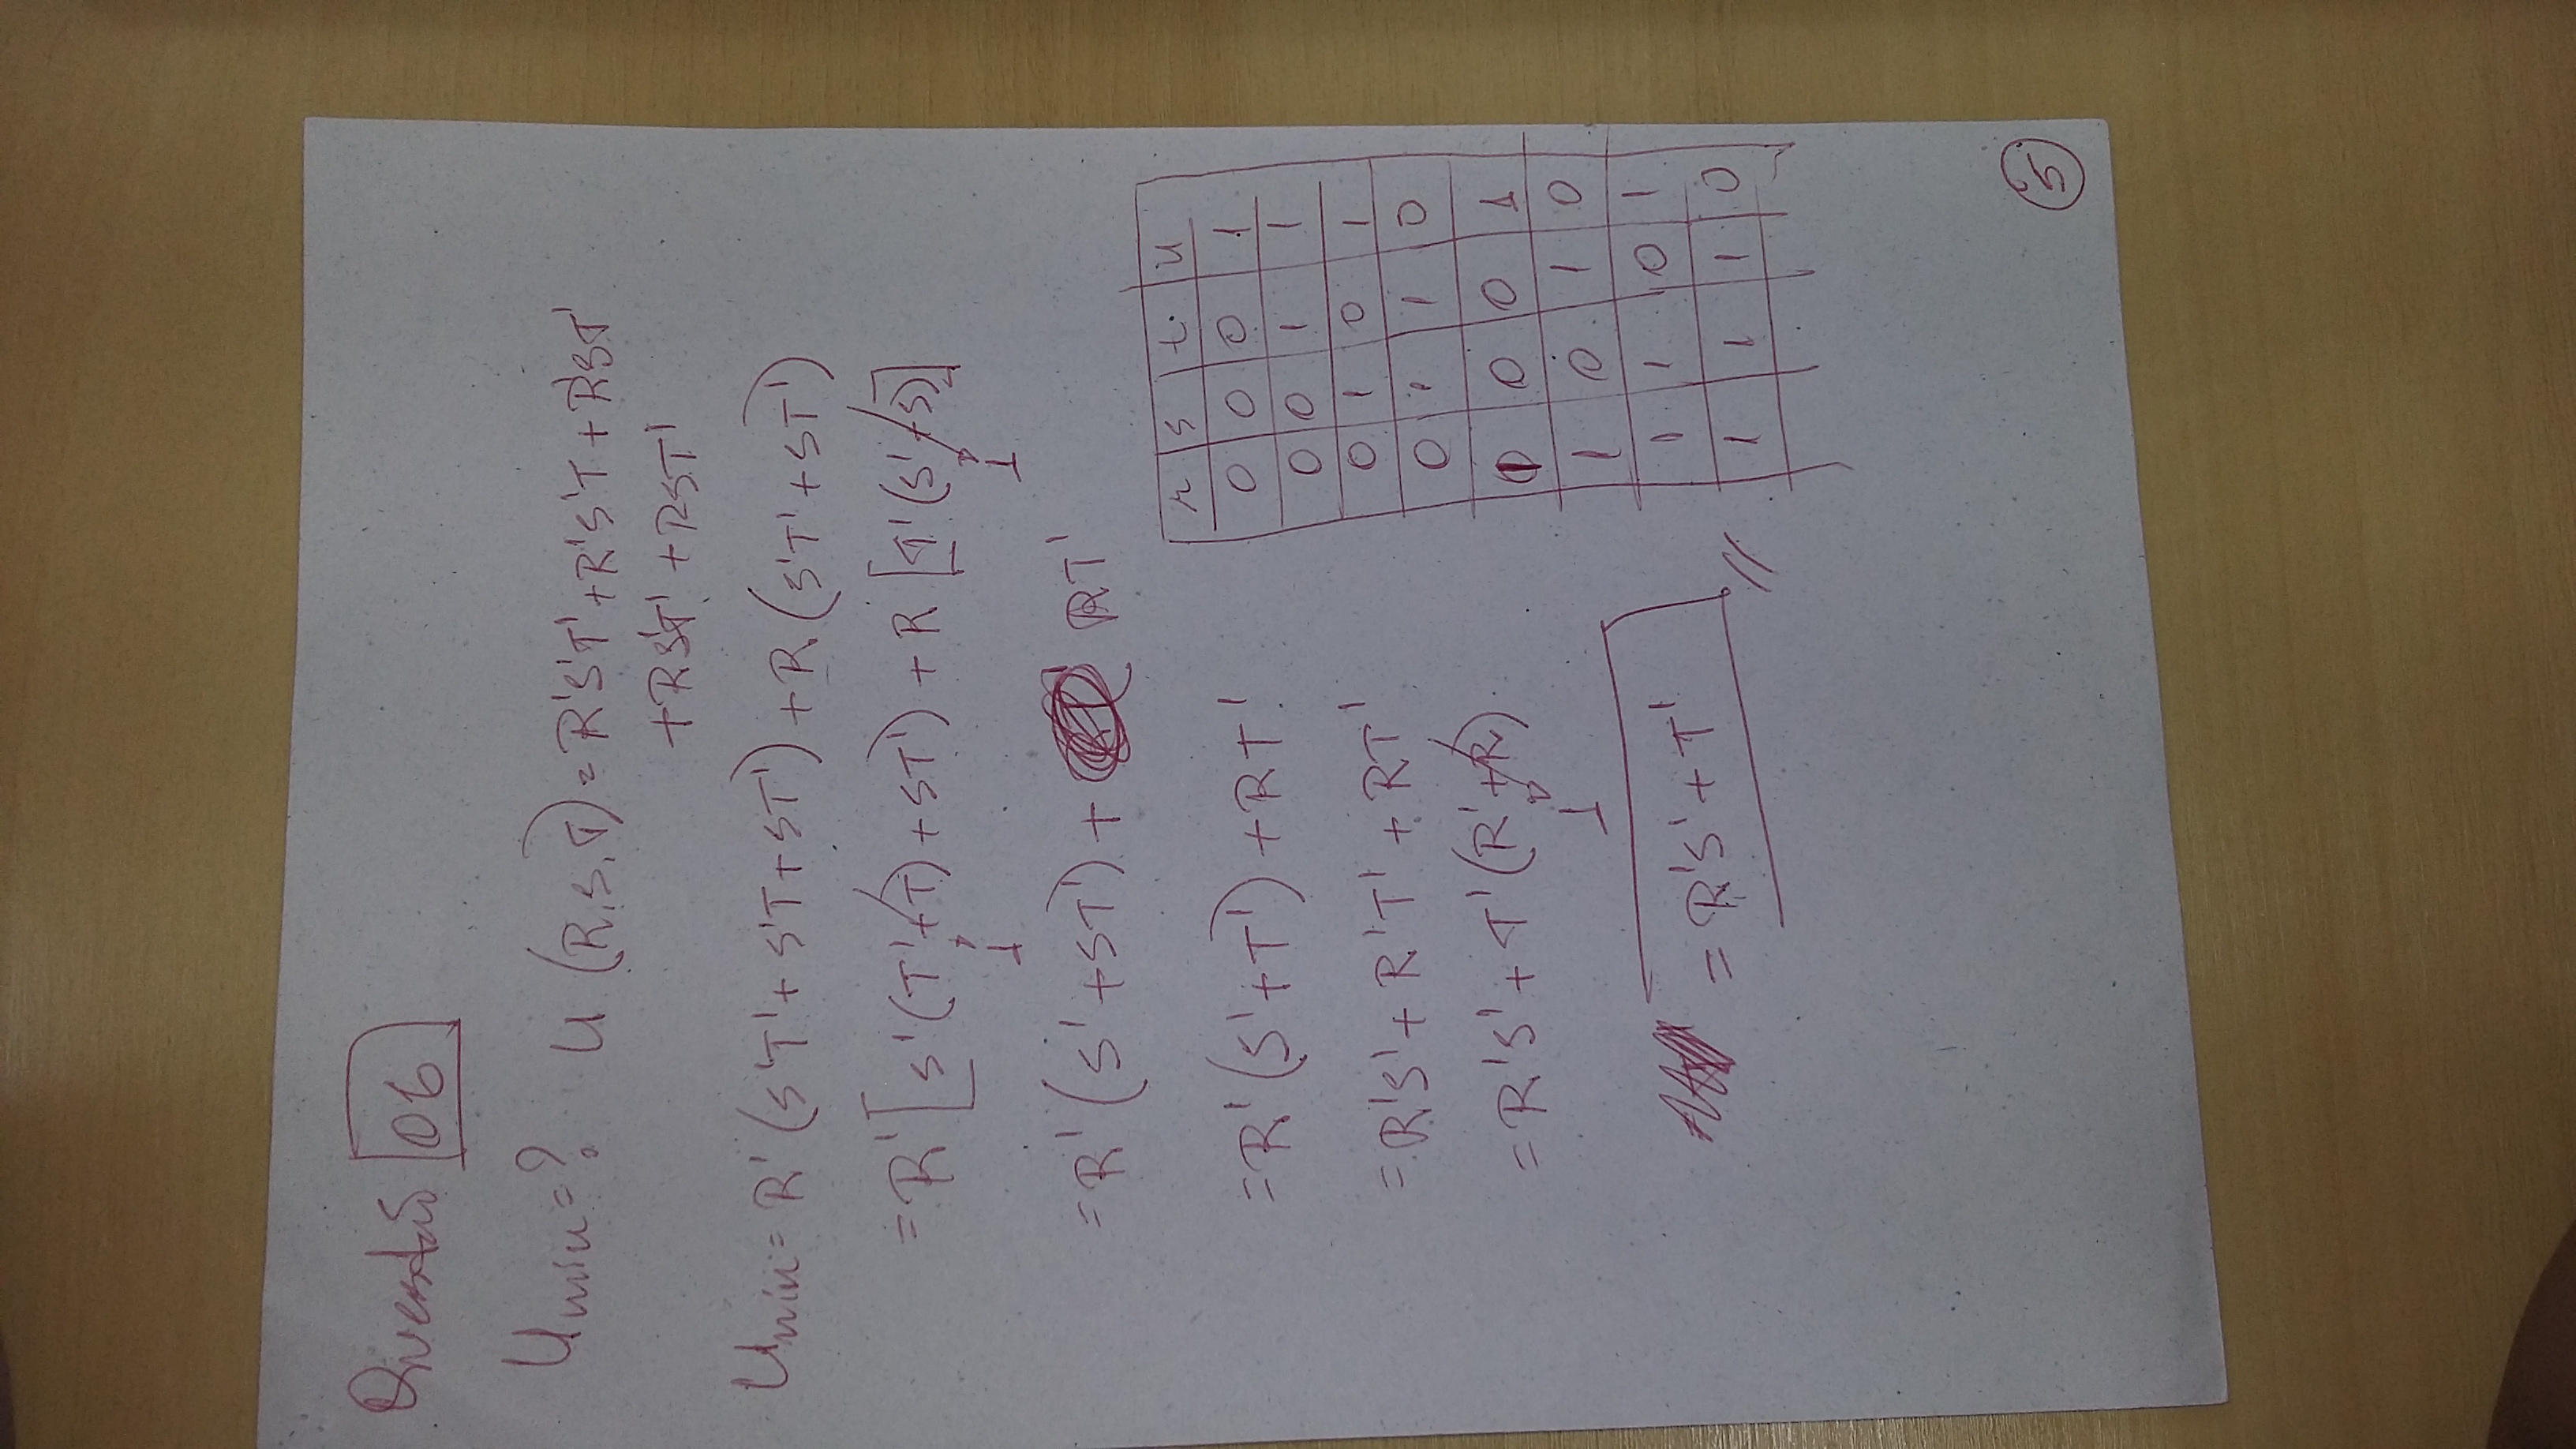 Questão 06
Umin=? U (R,S,T)=R'S'T'+R'S'T+R'ST'
+RS'T'+RST'
Umin=R'(S'T'+S'T+ST')+R(S'T'+ST')
=R'[S'(T'+T)+ST')+R[T'(S'+S)]
1 1
=R'(S'+ST')+ RT'
=R'(S'+T')+RT'
=R'S'+R'T'+RT'
=R'S'+T'(R'+R)
1
=R'S'+T'
r s t u
0 0 0 1
0 0 1 1
0 1 0 1
0 1 1 0
1 0 0 1
1 0 1 0
1 1 0 1
1 1 1 0
5